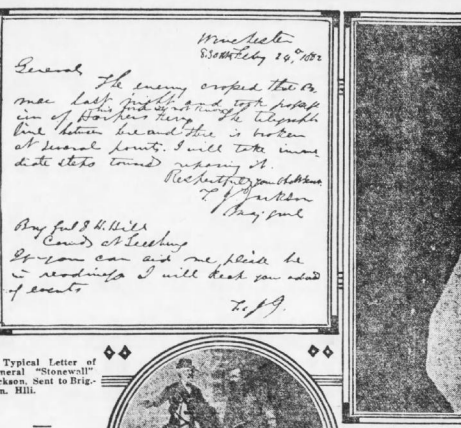 Winchester
8.30 AM Feby 24th 1862
General
The enemy crossed the Po
mac last night and took posses
ion of Harpers Ferry. The telegraph
line between here and there is broken
at several points. I will take imme
diate steps toward reparing it.
Respectfully your
T. J. Jackson
Brig. Genl
Brig Genl D. H. Hill
Comdg at Leesburg
If you can aid me, please be
in readiness I will keep you advised
of events
T. J. J.
Typical Letter of
neral "Stonewall"
ckson, Sent to Brig.-
n. Hill.